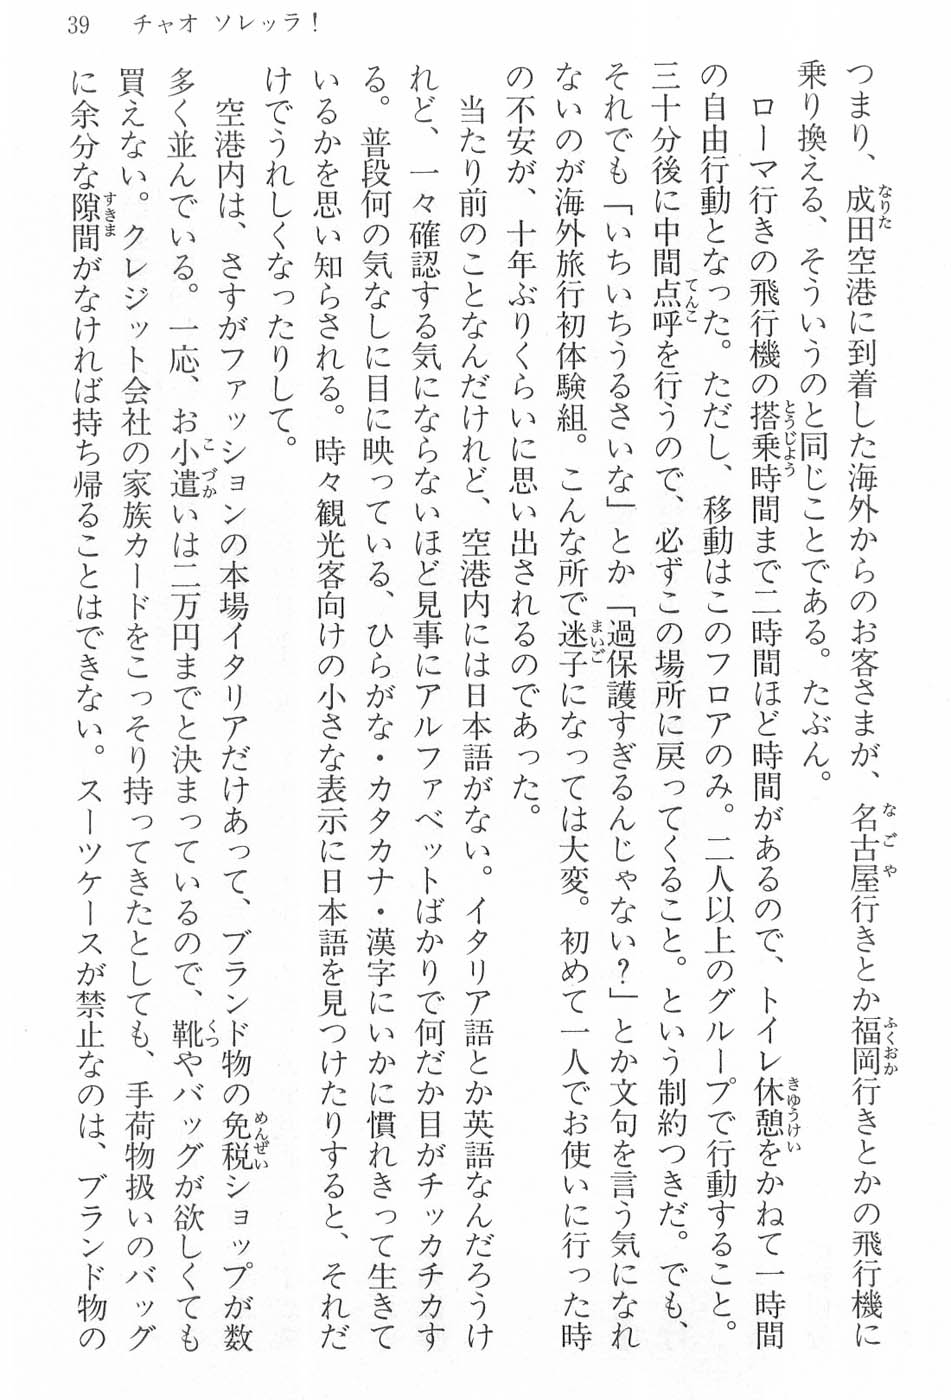 39　チャオ ソレッラ！
つまり、成田空港に到着した海外からのお客さまが、名古屋行きとか福岡行きとかの飛行機に
乗り換える、そういうのと同じことである。たぶん。
　ローマ行きの飛行機の搭乗時間まで二時間ほど時間があるので、トイレ休憩をかねて一時間
の自由行動となった。ただし、移動はこのフロアのみ。二人以上のグループで行動すること。
三十分後に中間点呼を行うので、必ずこの場所に戻ってくること。という制約つきだ。でも、
それでも「いちいちうるさいな」とか「過保護すぎるんじゃない？」とか文句を言う気になれ
ないのが海外旅行初体験組。こんな所で迷子になっては大変。初めて一人でお使いに行った時
の不安が、十年ぶりくらいに思い出されるのであった。
　当たり前のことなんだけれど、空港内には日本語がない。イタリア語とか英語なんだろうけ
れど、一々確認する気にならないほど見事にアルファベットばかりで何だか目がチッカチカす
る。普段何の気なしに目に映っている、ひらがな・カタカナ・漢字にいかに慣れきって生きて
いるかを思い知らされる。時々観光客向けの小さな表示に日本語を見つけたりすると、それだ
けでうれしくなったりして。
　空港内は、さすがファッションの本場イタリアだけあって、ブランド物の免税ショップが数
多く並んでいる。一応、お小遣いは二万円までと決まっているので、靴やバッグが欲しくても
買えない。クレジット会社の家族カードをこっそり持ってきたとしても、手荷物扱いのバッグ
に余分な隙間がなければ持ち帰ることはできない。スーツケースが禁止なのは、ブランド物の